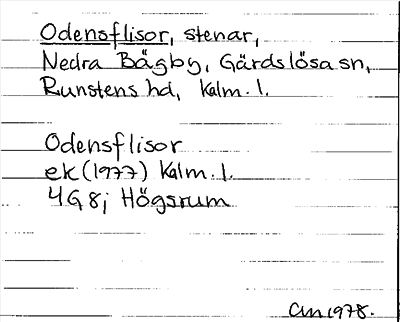 Odensflisor, stenar,
Nedra Bägby, Gärdslösa sn,
Runstens hd, Kalm. l.
Odensflisor
ek (1977) Kalm. l.
4G 8j Högsrum
1978.